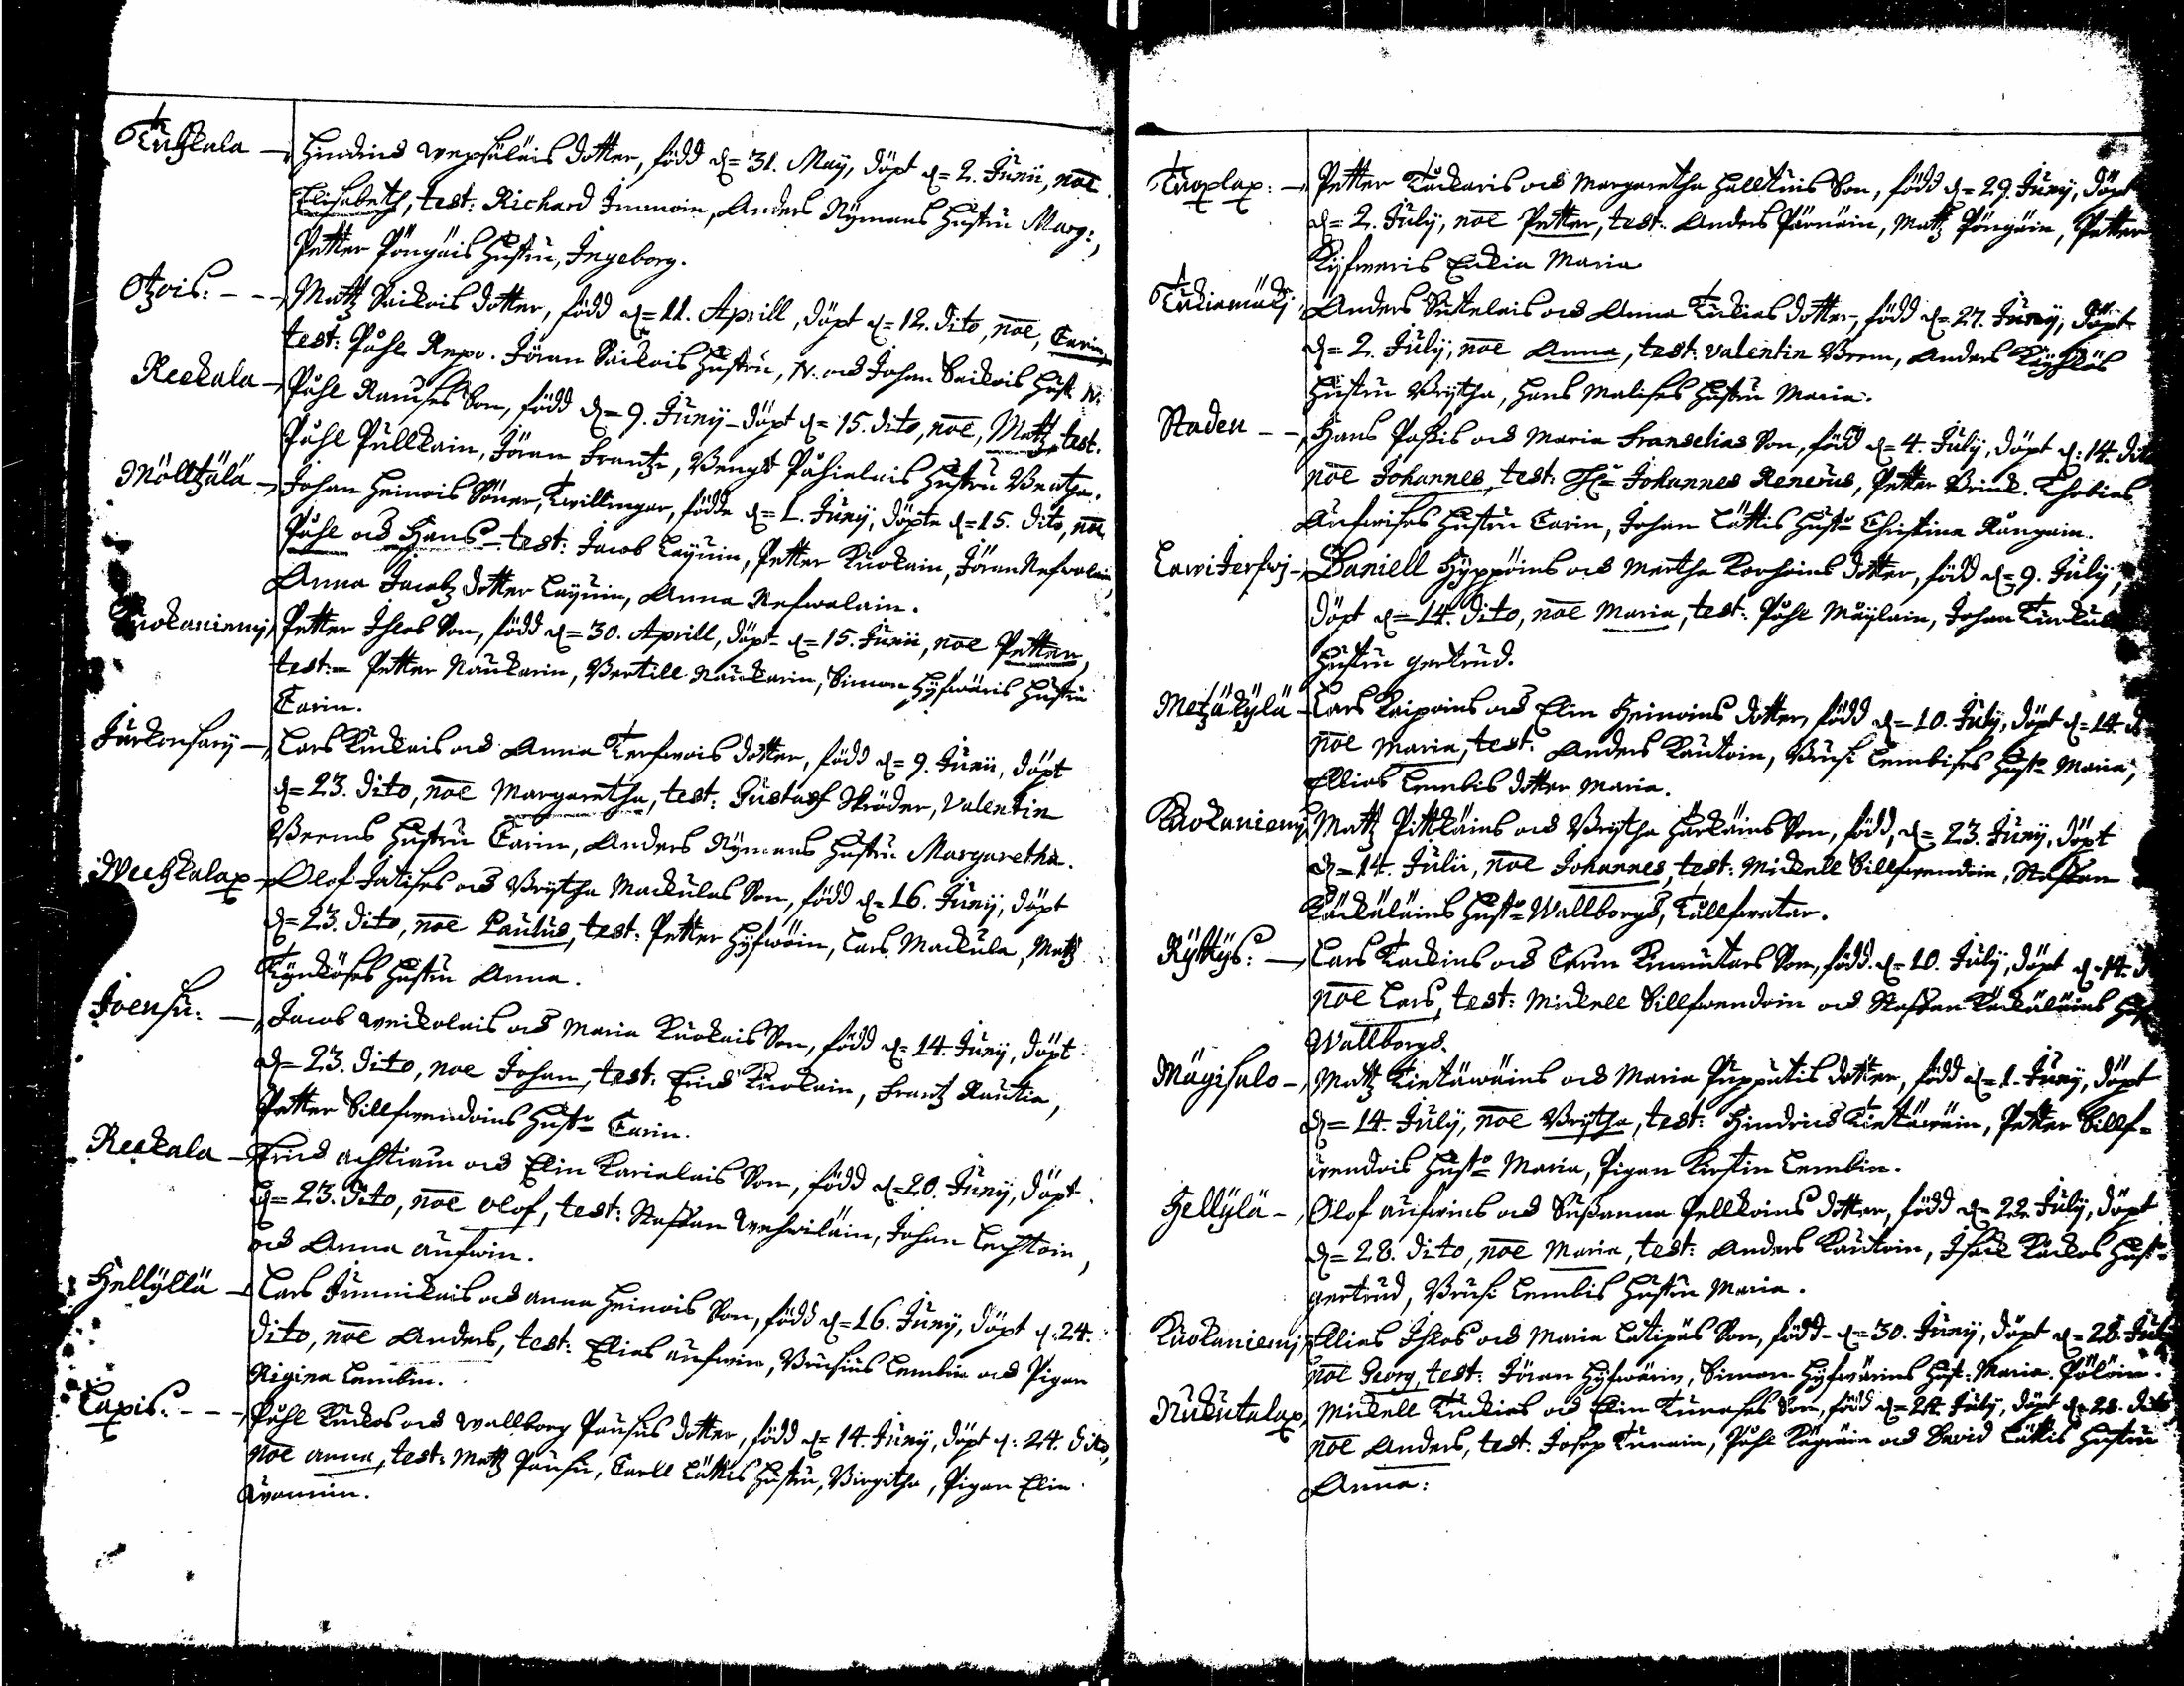 Tuhkala — Hindrich wepsäläis dotter, född d= 31. Maÿ, döpt d= 2. Junii, noe
Elisabeth, test: Richard Immoin, Anders Nÿmans hustru Marg:,
Petter Pöngäis hustru, Ingeborg.
Otzois: - - - Mattz Saickois dotter, född d= 11. Aprill, döpt d= 12. dito, noe, Carin,
test: Påhl Repo. Jöran Saickois hustru, N. och Johan Saickois hust N:
Reekala — Påhl Ramses Son, född d= 9. Junÿ - döpt d= 15. dito, noe, Mattz, test.
Påhl Pullkain, Jöran Frantz, Bengt Påhialais hustru Beatha.
Möltzälä — Johan Heinois Söner, Twillingar, födde d= 1. Junÿ, döpte d= 15. dito, noe
Påhl och Hans - test: Jacob Laÿuin, Petter Kuokain, Jöran Nefwalain,
Anna Jacobz dotter Laÿuin, Anna Nefwalain.
Kuokaniemÿ, Petter Ihlos Son, född d= 30. Aprill, döpt d= 15. Junii, noe Petter,
test:= Petter Naukarin, Bertill Naukarin, Simon Hÿfwäris hustru
Carin.
Jurkonsarÿ — Lars Kuckois och Anna Terfwois dotter, född d= 9. Junii, döpt
d= 23. dito, noe Margaretha, test: Gustaff Ströder, Valentin
Brems hustru Carin, Anders Nÿmans hustru Margaretha.
Weehkalax — Olof Jatises och Brÿtha Mackulas Son, född d= 16. Junÿ, döpt
d= 23. dito, noe Paulus, test: Petter Hÿfwöin, Lars Mackula, Mattz
Tÿncköses hustru Anna.
Joensu: — Jacob weickolais och Maria Kuokais Son, född d= 14. Junÿ, döpt
d= 23. dito, noe Johan, test: Erich Kuokain, Frantz Rautia,
Petter Sillfwendoins hust= Carin.
Reekala — Erich Achtiain och Elin Karialais Son, född d= 20. Junÿ, döpt
d= 23. dito, noe Olof, test: Staffan Wehwiläin, Johan Lechtoin,
och Anna Aufwin.
Hellÿllä — Lars Junnickais och Anna Heinois Son, född d= 16. Junÿ, döpt d. 24.
dito, noe Anders, test: Elias Aufwin, Brusius Lembin och Pigan
Rigina Lembin.
Laxis: - - - Påhl Kuckos och Wallborg Pausus dotter, född d= 14. Junÿ, döpt d: 24. dito,
noe Anna, test: Mattz Pausu, Carll Lättis hustru, Birgitha, Pigan Elin
Avonnin.
Tuoplax: — Petter Tuckaris och Margaretha Halltuis Son, född d= 29. Junÿ, döpt
d= 2. Julÿ, noe Petter, test: Anders Pärnäin, Mattz Pöngäin, Petter
Kÿfweris Enckia Maria
Tuckiamäcki, Anders Suckelais och Anna Tuckias dotter, född d= 27. Junÿ, döpt
d= 2. Julÿ, noe Anna, test: Valentin Brem, Anders Käÿhkös
hustru Brÿtha, Hans Malises hustru Maria.
Staden - - Hans Pasis och Maria Franselias Son, född d= 4. Julÿ, döpt d: 14. dito
noe Johannes, test: H= Johannes Renerus, Petter Brink. Thobias
Aufwises hustru Carin, Johan Lättis hust= Christina Rångain.
Lawiterfwj — Daniell Hÿppöins och Mertha Korhoins dotter, född d= 9. Julÿ,
döpt d= 14. dito, noe Maria, test: Påhl Mäÿläin, Johan Tuckus
hustru gertrud.
Metzäkÿlä — Lars Kaipoins och Elin Heinoins dotter, född d= 10. Julÿ, döpt d= 14. d
noe Maria, test: Anders Rautoin, Brusi Lembises hust= Maria,
Ellias Lembis dotter Maria.
Kuokaniemÿ, Mattz Pittkäins och Brÿtha Härkäins Son, född, d= 23. Junÿ, döpt
d= 14. Julii, noe Johannes, test: Mickell Sillfwendoin, Staffan
Käckäläins hust= Wallborgh, Tullfwatar.
Rÿttÿs: — Lars Tackins och Carin Kinnutars Son, född. d= 10. Julÿ, döpt d= 14. d
noe Lars, test: Mickell Sillfwendoin och Staffan Käckäläins hust
Wallborgh.
Mägisalo — Mattz Kietäwäins och Maria Puppatis dotter, född d= 1. Junÿ, döpt
d= 14. Julÿ, noe Brÿtha, test: Hindrich Kietäwäin, Petter Sillf=
wendois hust= Maria, Pigan Kirstin Lembin.
Hellÿlä — Olof Aufwins och Susanna Pellkoins dotter, född d= 22. Julÿ, döpt
d= 28. dito, noe Maria, test: Anders Rautoin, Isack Kuckos hust=
gertrud, Brusi Lembis hustru Maria.
Kuokaniemj, Ellias Ihlos och Maria Latipäs Son, född - d= 30. Junÿ, döpt d= 28. Julÿ
noe Georg, test: Jöran Hÿfwärin, Simon Hÿfwärins hust: Maria Pölöin.
Rukutalax, Mickell Tuckias och Elin Tunases Son, född d= 24. Julÿ, döpt d= 28. dito
noe Anders, test: Josep Tunain, Påhl Rägöin och David Lättis hustru
Anna: